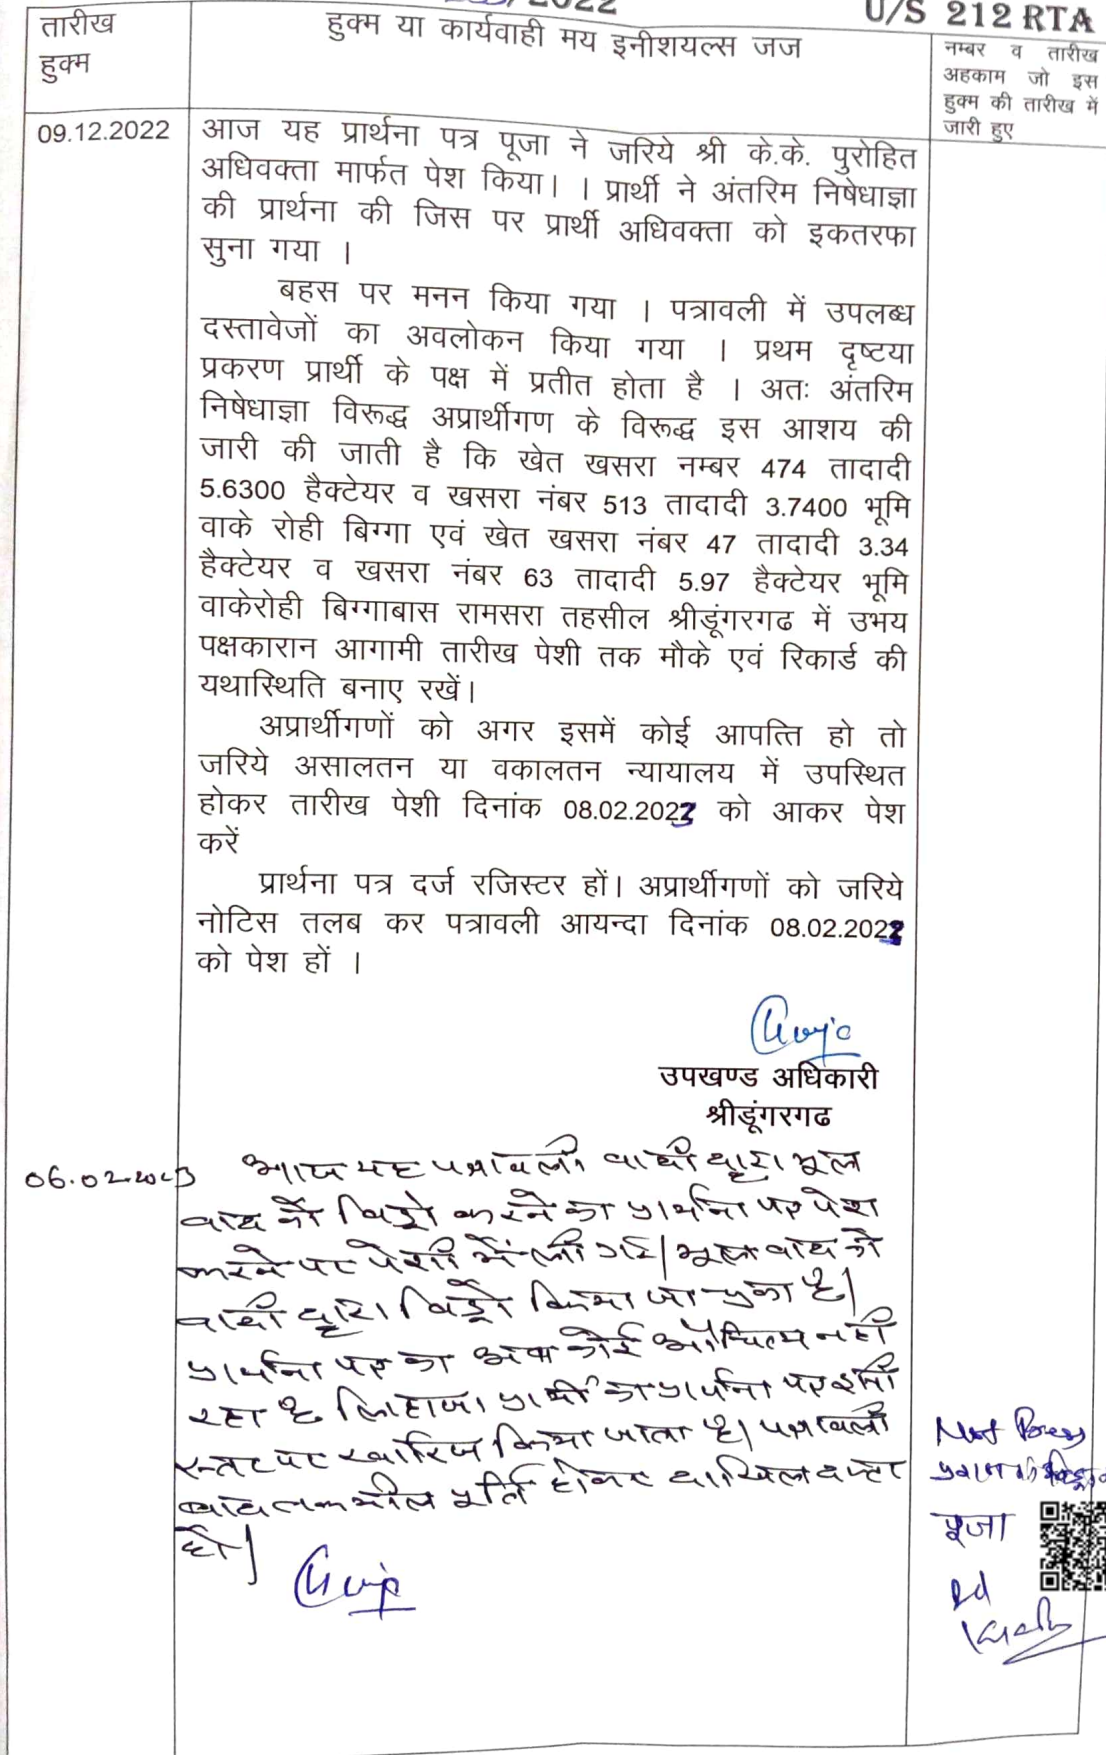 /2022
U/S 212 RTA
तारीख
हुक्म
हुक्म या कार्यवाही मय इनीशयल्स जज
नम्बर व तारीख
अहकाम जो इस
हुक्म की तारीख में
जारी हुए
09.12.2022
आज यह प्रार्थना पत्र पूजा ने जरिये श्री के.के. पुरोहित
अधिवक्ता मार्फत पेश किया। । प्रार्थी ने अंतरिम निषेधाज्ञा
की प्रार्थना की जिस पर प्रार्थी अधिवक्ता को इकतरफा
सुना गया ।
बहस पर मनन किया गया । पत्रावली में उपलब्ध
दस्तावेजों का अवलोकन किया गया । प्रथम दृष्टया
प्रकरण प्रार्थी के पक्ष में प्रतीत होता है । अतः अंतरिम
निषेधाज्ञा विरूद्ध अप्रार्थीगण के विरूद्ध इस आशय की
जारी की जाती है कि खेत खसरा नम्बर 474 तादादी
5.6300 हैक्टेयर व खसरा नंबर 513 तादादी 3.7400 भूमि
वाके रोही बिग्गा एवं खेत खसरा नंबर 47 तादादी 3.34
हैक्टेयर व खसरा नंबर 63 तादादी 5.97 हैक्टेयर भूमि
वाकेरोही बिग्गाबास रामसरा तहसील श्रीडूंगरगढ में उभय
पक्षकारान आगामी तारीख पेशी तक मौके एवं रिकार्ड की
यथास्थिति बनाए रखें।
अप्रार्थीगणों को अगर इसमें कोई आपत्ति हो तो
जरिये असालतन या वकालतन न्यायालय में उपस्थित
होकर तारीख पेशी दिनांक 08.02.2023 को आकर पेश
करें
प्रार्थना पत्र दर्ज रजिस्टर हों। अप्रार्थीगणों को जरिये
नोटिस तलब कर पत्रावली आयन्दा दिनांक 08.02.2023
को पेश हों ।
उपखण्ड अधिकारी
श्रीडूंगरगढ
06.02.2023
आज यह पत्रावली वादी द्वारा मूल
वाद को विड्रो करने का प्रार्थना पत्र पेश
करने पर पेशी में ली गई। मूल वाद को
वादी द्वारा विड्रो किया जा चुका है।
प्रार्थना पत्र का अब कोई औचित्य नहीं
रहा है लिहाजा प्रार्थी का प्रार्थना पत्र इसी
स्तर पर खारिज किया जाता है। पत्रावली
बाद तकमील पूर्ति होकर दाखिल दफ्तर
हो।
Not Press
पूजा